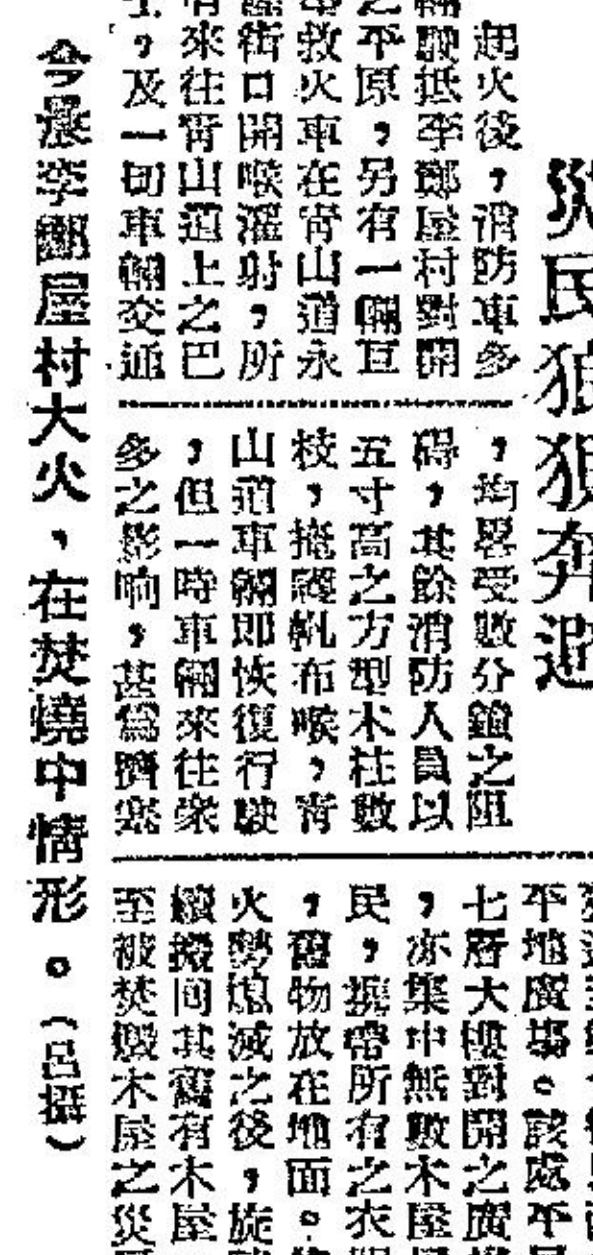 災民狼狽奔避
起火後，消防車多
輛駛抵李鄭屋村對開
之平原，另有一輛亘
救火車在靑山道永
街口開喉灌射，所
有來往靑山道上之巴
，及一切車輛交通
，均畧受數分鐘之阻
碍，其餘消防人員以
五寸高之方型木柱數
枝，掩護帆布喉，靑
山道車輛即恢復行駛
，但一時車輛來往衆
多之影响，甚爲擠塞
平地廣場。該處平
七層大樓對開之廣
，亦集中無數木屋
民，携帶所有之衣
，舊物放在地面。
火勢熄滅之後，旋
續搬回其舊有木屋
至被焚毀木屋之災
今晨李鄭屋村大火，在焚燒中情形。（呂攝）